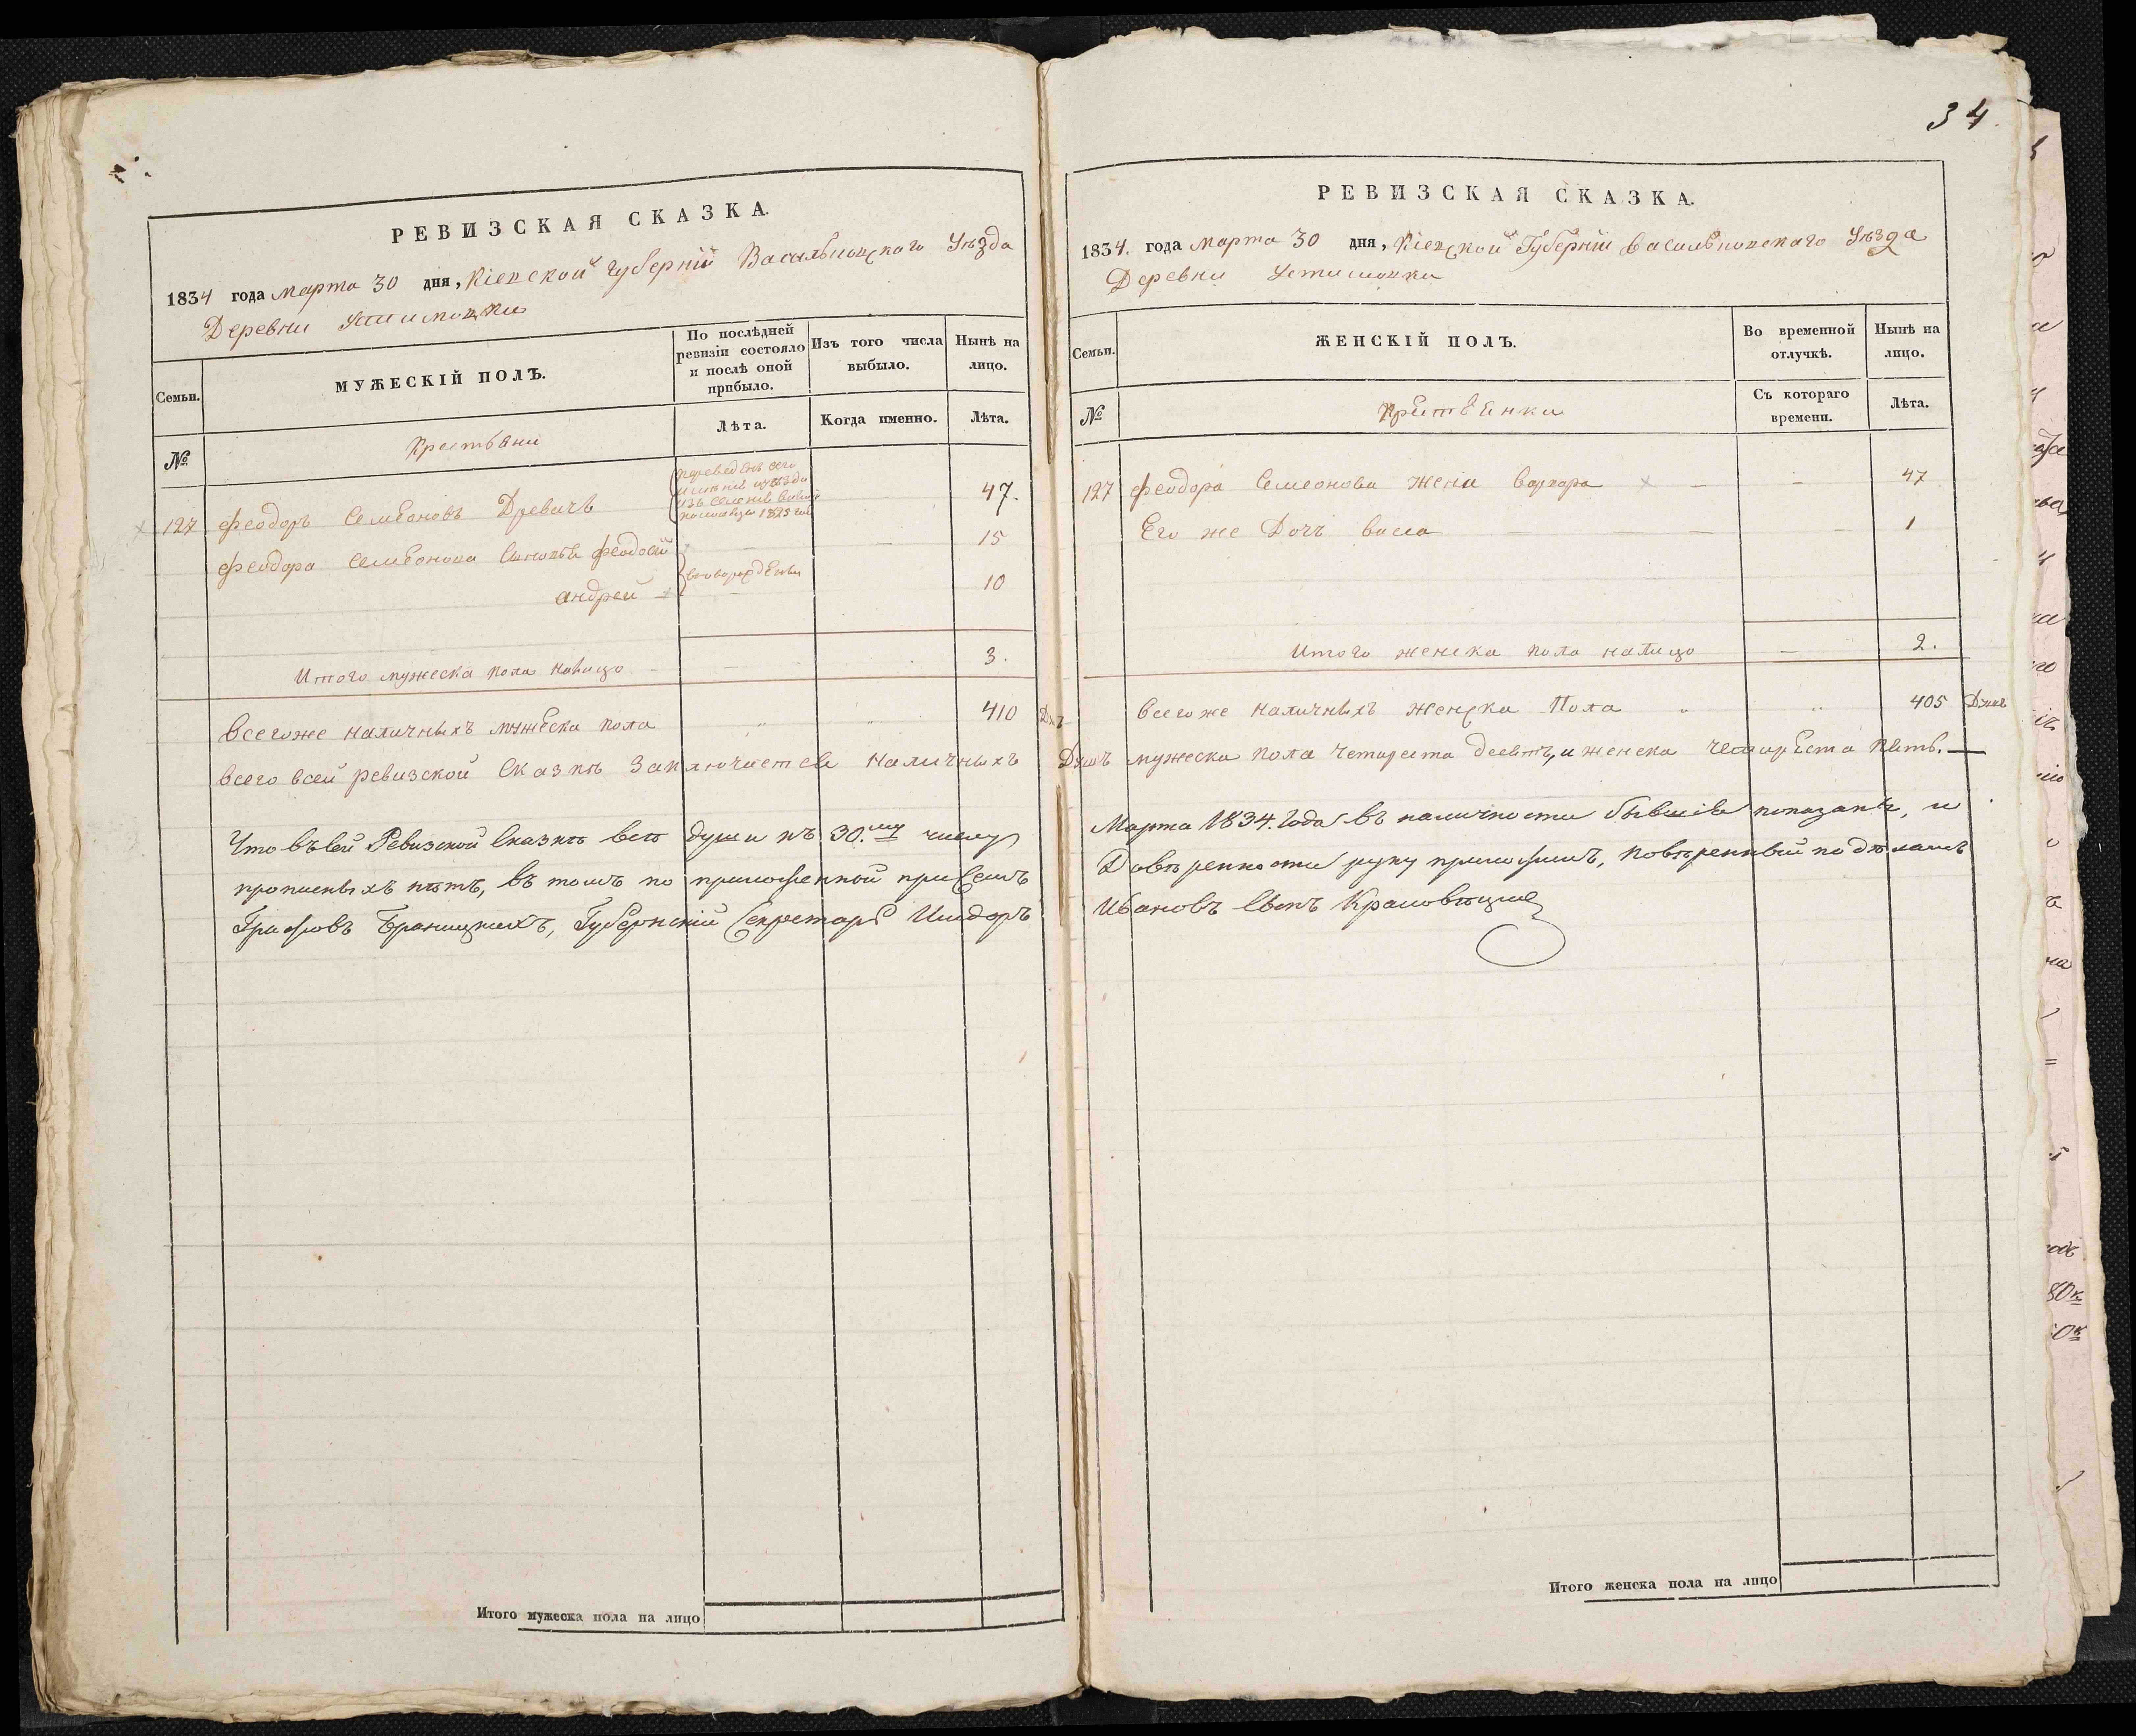 РЕВИЗСКАЯ СКАЗКА.
1834 года марта 30 дня, Кіевской губерніи Васильковскаго Уѣзда
Деревни Устимовки
Семьи.
МУЖЕСКІЙ ПОЛЪ.
По послѣдней ревизіи состояло и послѣ оной прибыло.
Изъ того числа выбыло.
Нынѣ на лицо.
№
Крестьяни
Лѣта.
Когда именно.
Лѣта.
127 Феодоръ Семеоновъ Древичъ
переведенъ сего
имѣнія
изъ Селенія
1825
47.
Феодора Семеонова Сыновья Феодосій 15
Андрей
10
Итого мужеска пола налицо 3.
Всего же наличныхъ мужеска пола 410
Всего всей ревизской Сказкѣ Заключается Наличныхъ
Что въ сей Ревизской Сказкѣ всѣ души къ 30.му числу
прописныхъ нѣтъ, въ томъ по приложенной при семъ
Графовъ Браницкихъ, Губернскій Секретарь Исидоръ
Итого мужеска пола на лицо
34.
РЕВИЗСКАЯ СКАЗКА.
1834. года марта 30 дня, Кіевской Губерніи Васильковскаго Уѣзда
Деревни Устимовки
Семьи.
ЖЕНСКІЙ ПОЛЪ.
Во временной отлучкѣ.
Нынѣ на лицо.
№
Съ котораго времени.
Лѣта.
127 Феодора Семеонова жена Варвара 47
Его же Дочь Васса 1
Итого женска пола налицо 2.
Всего же наличныхъ женска Пола 405 Душъ
Душъ мужеска пола четыреста десять, и женска четыреста пять.
Марта 1834. Года въ наличности бывшіе показанѣ, и
Довѣренности руку приложилъ, повѣренный по дѣламъ
Ивановъ Сынъ
Итого женска пола на лицо